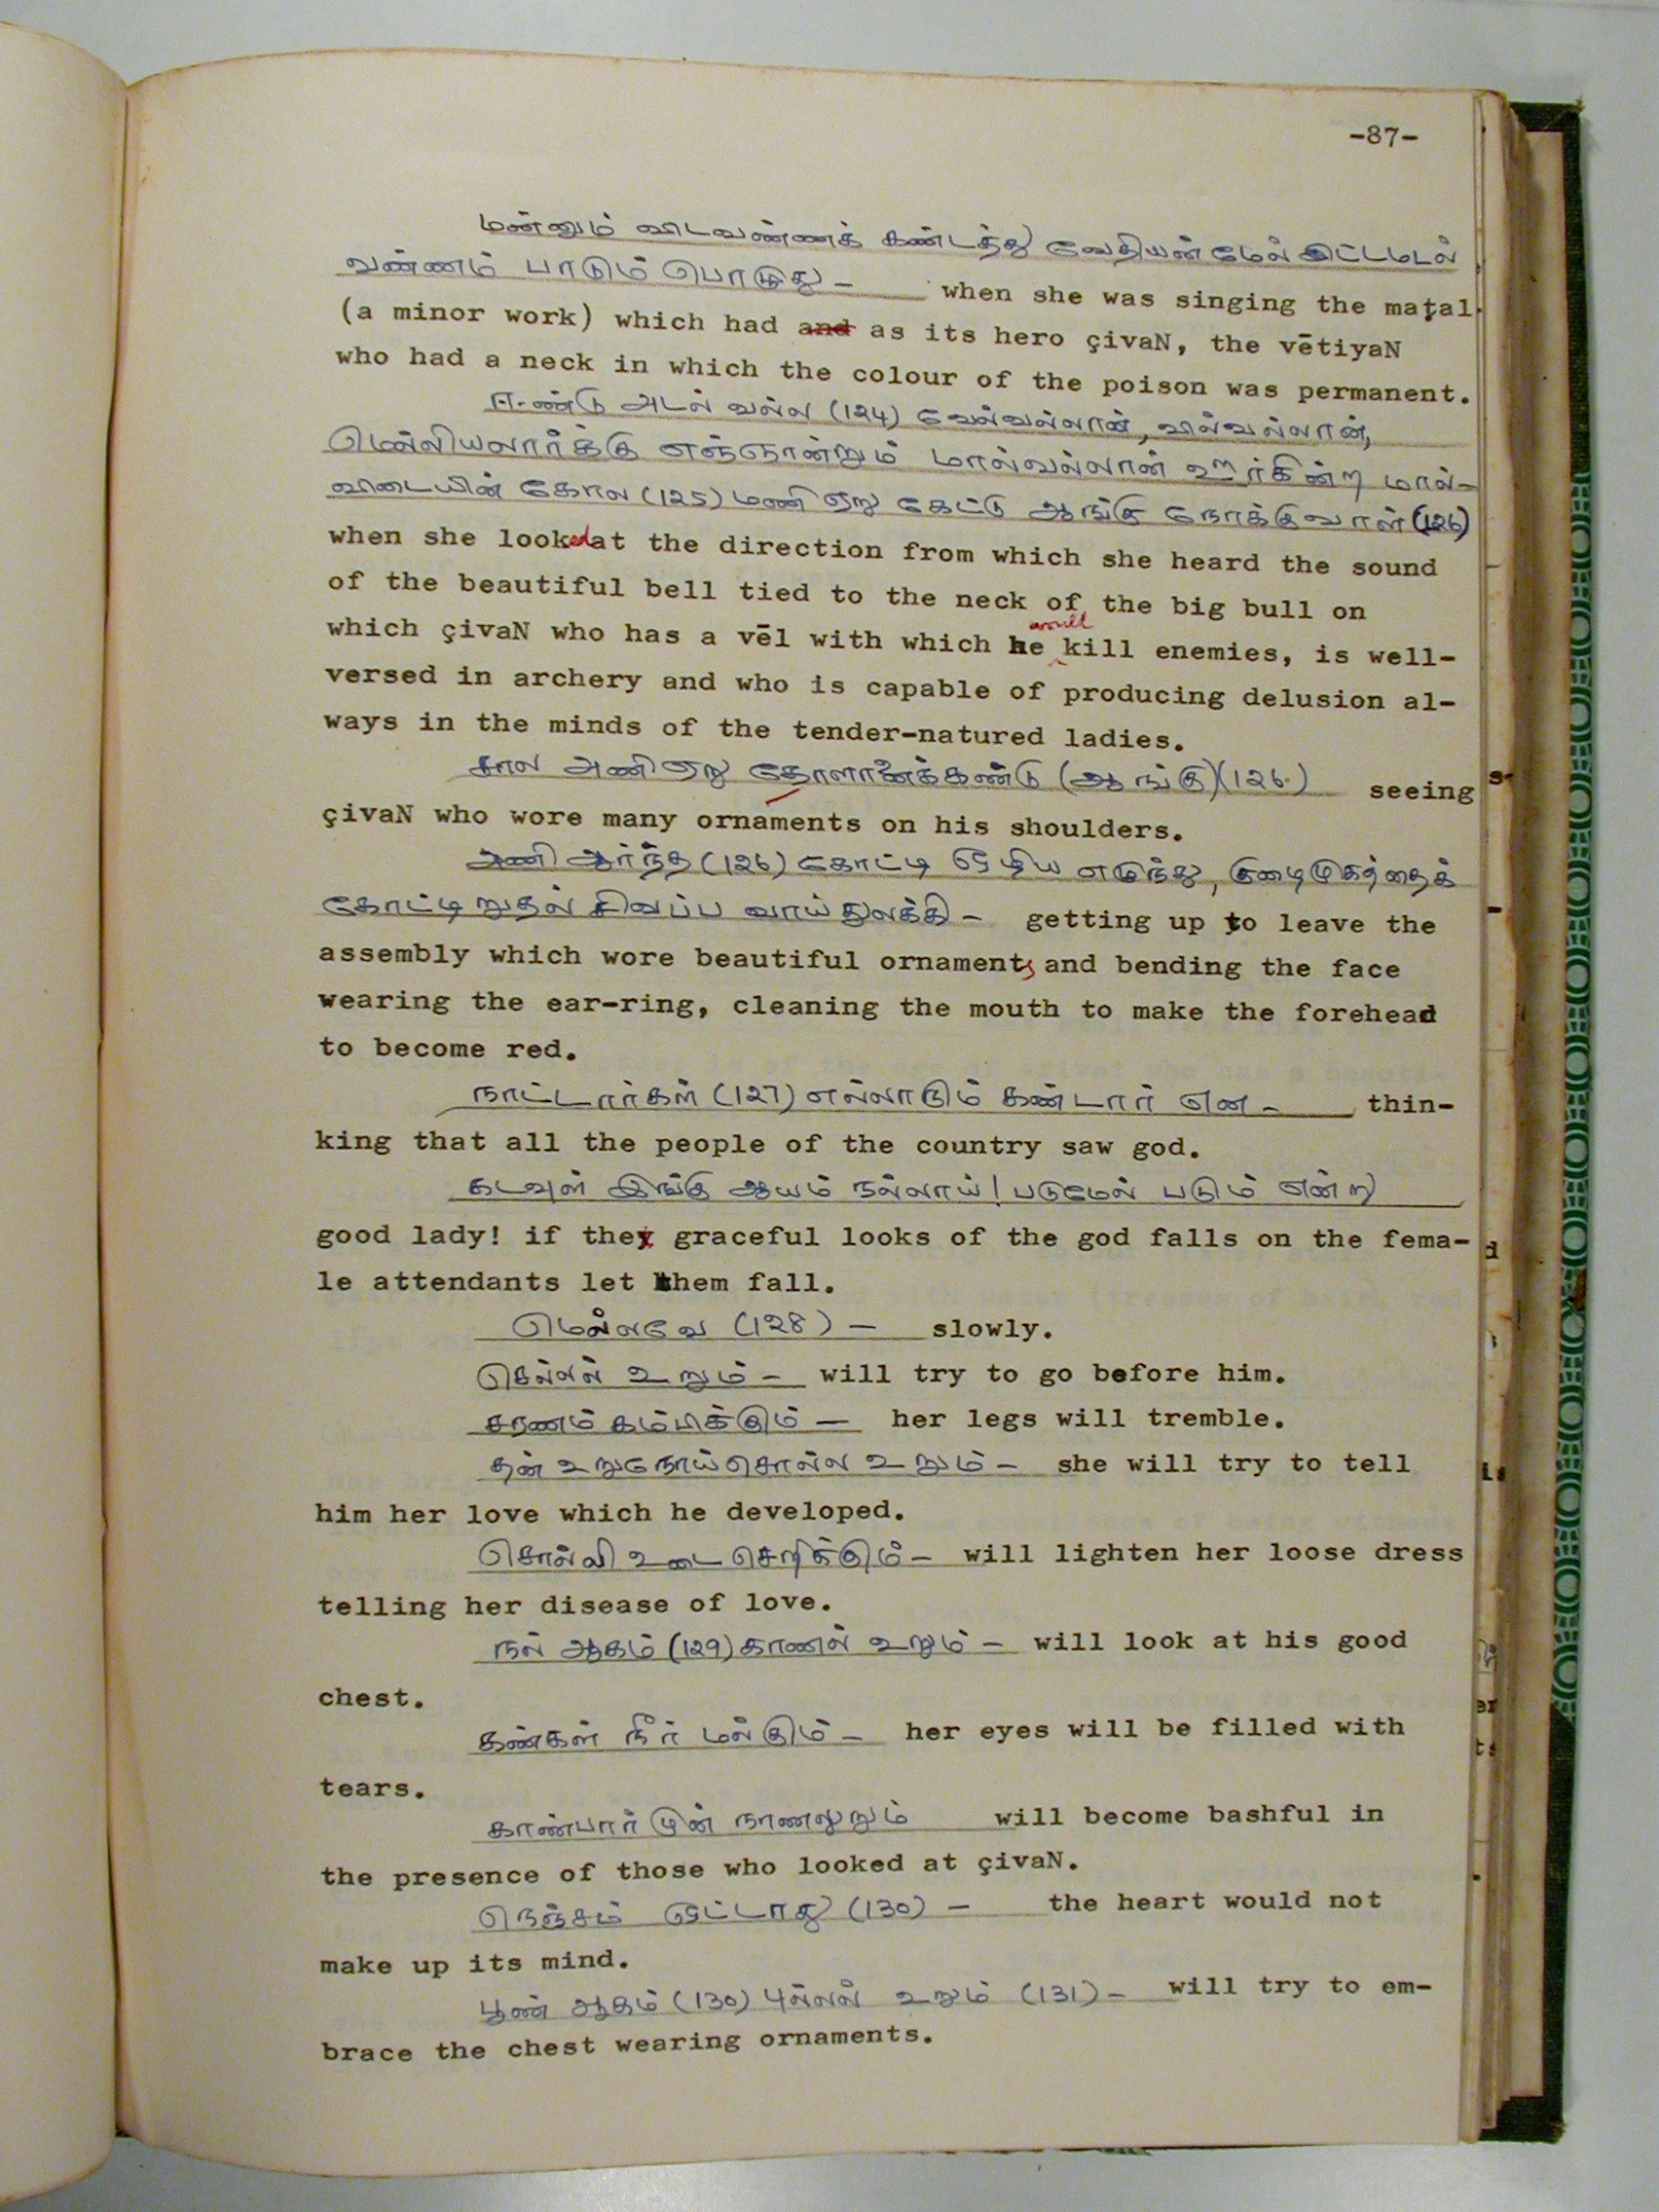 -87-
மன்னும் விடவண்ணக் கண்டத்து வேதியன்மேல் இட்டமடல்
வண்ணம் பாடும் பொழுது — when she was singing the maṭal
(a minor work) which had and as its hero çivaN, the vētiyaN
who had a neck in which the colour of the poison was permanent.
ஈண்டு அடல் வல்ல (124) வேல்வல்லான், வில்வல்லான்,
மெல்லியலார்க்கு எஞ்ஞான்றும் மால்வல்லான் ஊர்கின்ற மால்-
விடையின் கோல (125) மணி ஏறு கேட்டு ஆங்கு நோக்குவாள் (126)
when she looked at the direction from which she heard the sound
of the beautiful bell tied to the neck of the big bull on
which çivaN who has a vēl with which he would kill enemies, is well-
versed in archery and who is capable of producing delusion al-
ways in the minds of the tender-natured ladies.
சால அணி ஏறு தோளானைக்கண்டு (ஆங்கு)(126) seeing
çivaN who wore many ornaments on his shoulders.
அணி ஆர்ந்த (126) கோட்டி ஒழிய எழுந்து, குழைமுகத்தைக்
கோட்டி நுதல் சிவப்ப வாய் துலக்கி — getting up to leave the
assembly which wore beautiful ornaments and bending the face
wearing the ear-ring, cleaning the mouth to make the forehead
to become red.
நாட்டார்கள் (127) எல்லாரும் கண்டார் என — thin-
king that all the people of the country saw god.
கடவுள் இங்கு ஆயம் நல்லாய்! படுமேல் படும் என்று
good lady! if the graceful looks of the god falls on the fema-
le attendants let them fall.
மெல்லவே (128) — slowly.
செல்லல் உறும் — will try to go before him.
சரணம் கம்பிக்கும் — her legs will tremble.
தன் உறுநோய்சொல்ல உறும் — she will try to tell
him her love which he developed.
சொல்லி உடை செறிக்கும் — will lighten her loose dress
telling her disease of love.
நல் ஆகம் (129) காணல் உறும் — will look at his good
chest.
கண்கள் நீர் மல்கும் — her eyes will be filled with
tears.
காண்பார் முன் நாணலுறும் will become bashful in
the presence of those who looked at çivaN.
நெஞ்சம் ஒட்டாது (130) — the heart would not
make up its mind.
பூண் ஆகம் (130) புல்லல் உறும் (131) — will try to em-
brace the chest wearing ornaments.